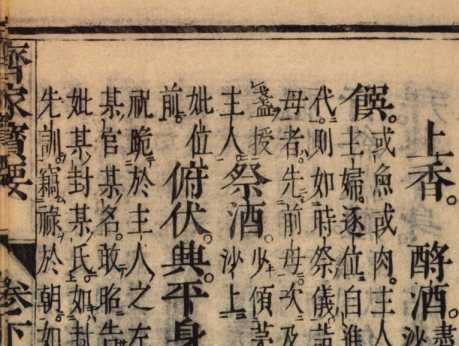 上香。酹酒。盡
沙
饌。或魚或肉。主人
主婦。逐位自進
代則如時祭儀
母者。先前母次及
盞授
主人。祭酒。少傾茅
沙上
妣位
前。俯伏。興。平身
祝跪於主人之左
某官某名。敢昭告
妣某封某氏。如封
先訓。竊祿於朝。如
齊家寶要 卷下